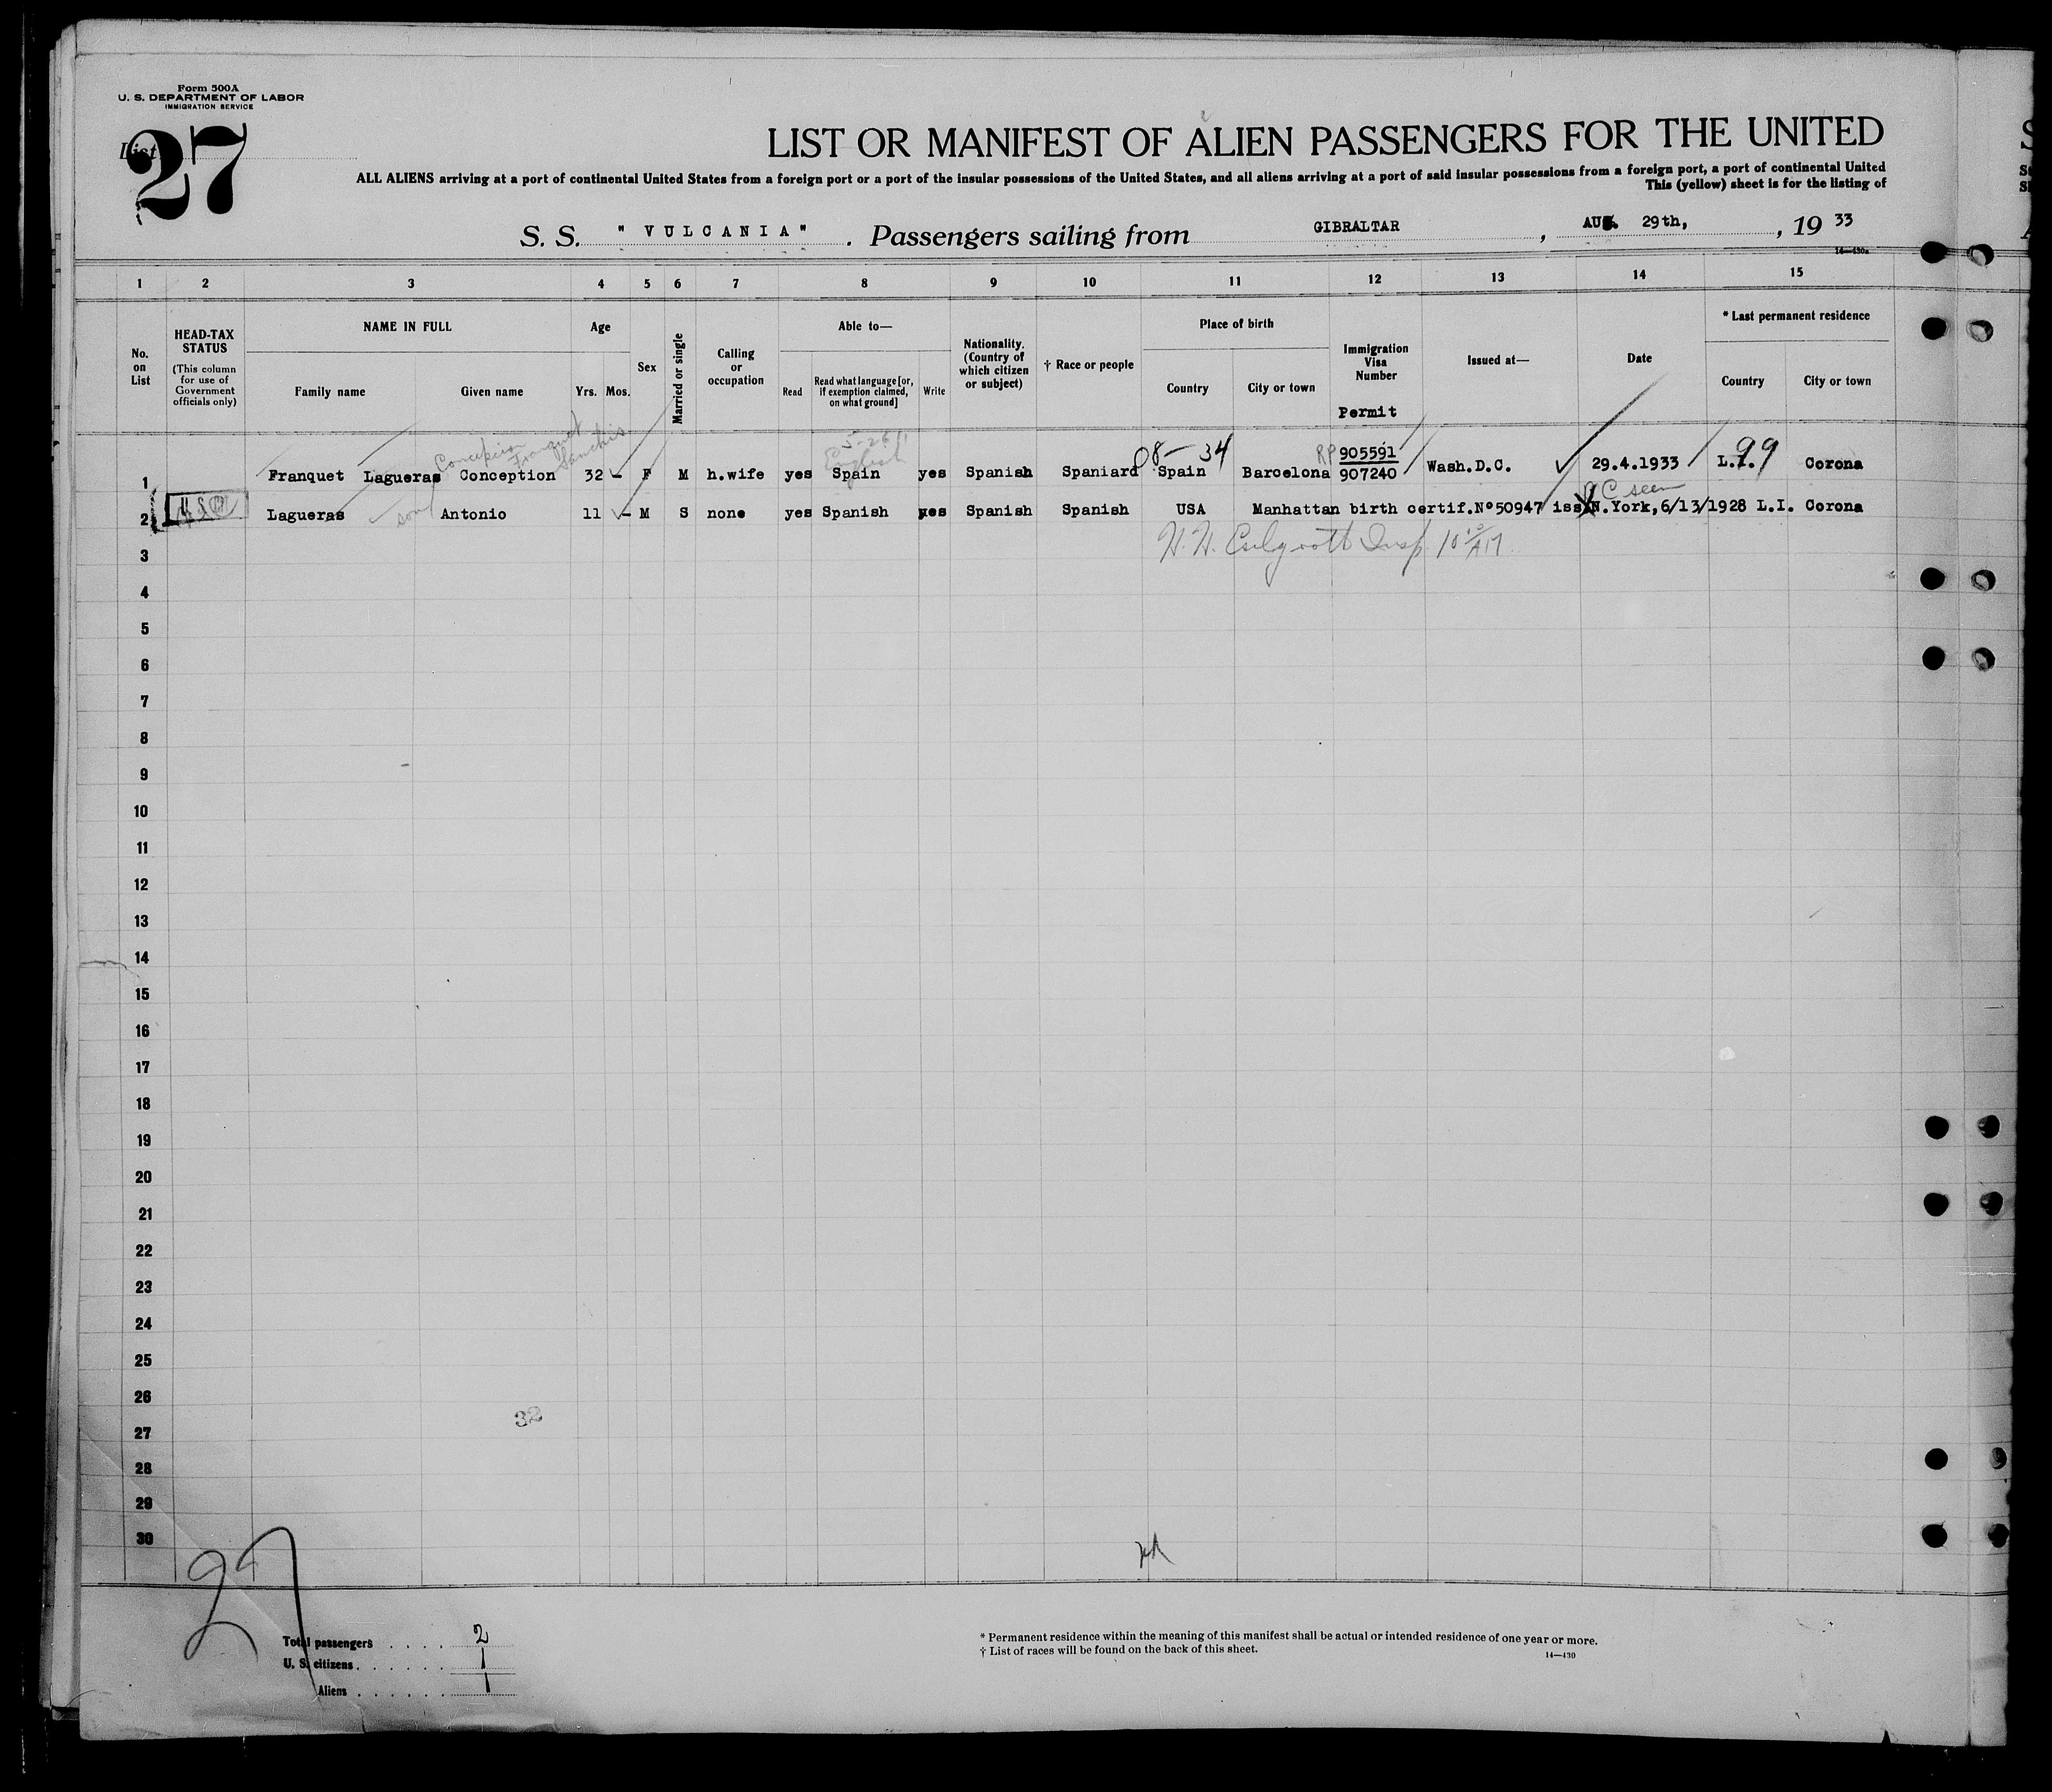 Form 500A
U. S. DEPARTMENT OF LABOR
IMMIGRATION SERVICE
List 27
LIST OR MANIFEST OF ALIEN PASSENGERS FOR THE UNITED
ALL ALIENS arriving at a port of continental United States from a foreign port or a port of the insular possessions of the United States, and all aliens arriving at a port of said insular possessions from a foreign port, a port of continental United
This (yellow) sheet is for the listing of
S. S. " VULCANIA" . Passengers sailing from GIBRALTAR , AUG. 29th, , 19 33
14—430a
1 2 3 4 5 6 7 8 9 10 11 12 13 14 15
No. on List
HEAD-TAX STATUS
(This column for use of Government officials only)
NAME IN FULL
Family name Given name
Age
Yrs. Mos.
Sex
Married or single
Calling or occupation
Able to—
Read Read what language [or, if exemption claimed, on what ground] Write
Nationality. (Country of which citizen or subject)
† Race or people
Place of birth
Country City or town
Immigration Visa Number
Permit
Issued at—
Date
* Last permanent residence
Country City or town
Concepcion Franquet Sanchis
5-26
English
08-34
RP 905591
99
1 Franquet Lagueras Conception 32 - F M h.wife yes Spain yes Spanish Spaniard Spain Barcelona 907240 Wash.D.C. 29.4.1933 L.I. Corona
BC seen
2 Lagueras son Antonio 11 - M S none yes Spanish yes Spanish Spanish USA Manhattan birth certif.Nº50947 iss N.York,6/13/1928 L.I. Corona
3
4
5
6
7
8
9
10
11
12
13
14
15
16
17
18
19
20
21
22
23
24
25
26
32
27
28
29
30
27
Total passengers . . . . 2
U. S. citizens . . . . . . 1
Aliens . . . . . . 1
* Permanent residence within the meaning of this manifest shall be actual or intended residence of one year or more.
† List of races will be found on the back of this sheet.
14—430